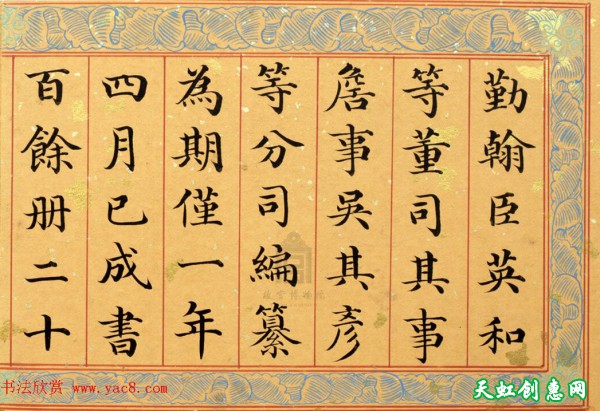 勤翰臣英和
等董司其事
詹事吳其彥
等分司編纂
為期僅一年
四月已成書
百餘册二十
书法欣赏 www.yac8.com
天虹创惠网